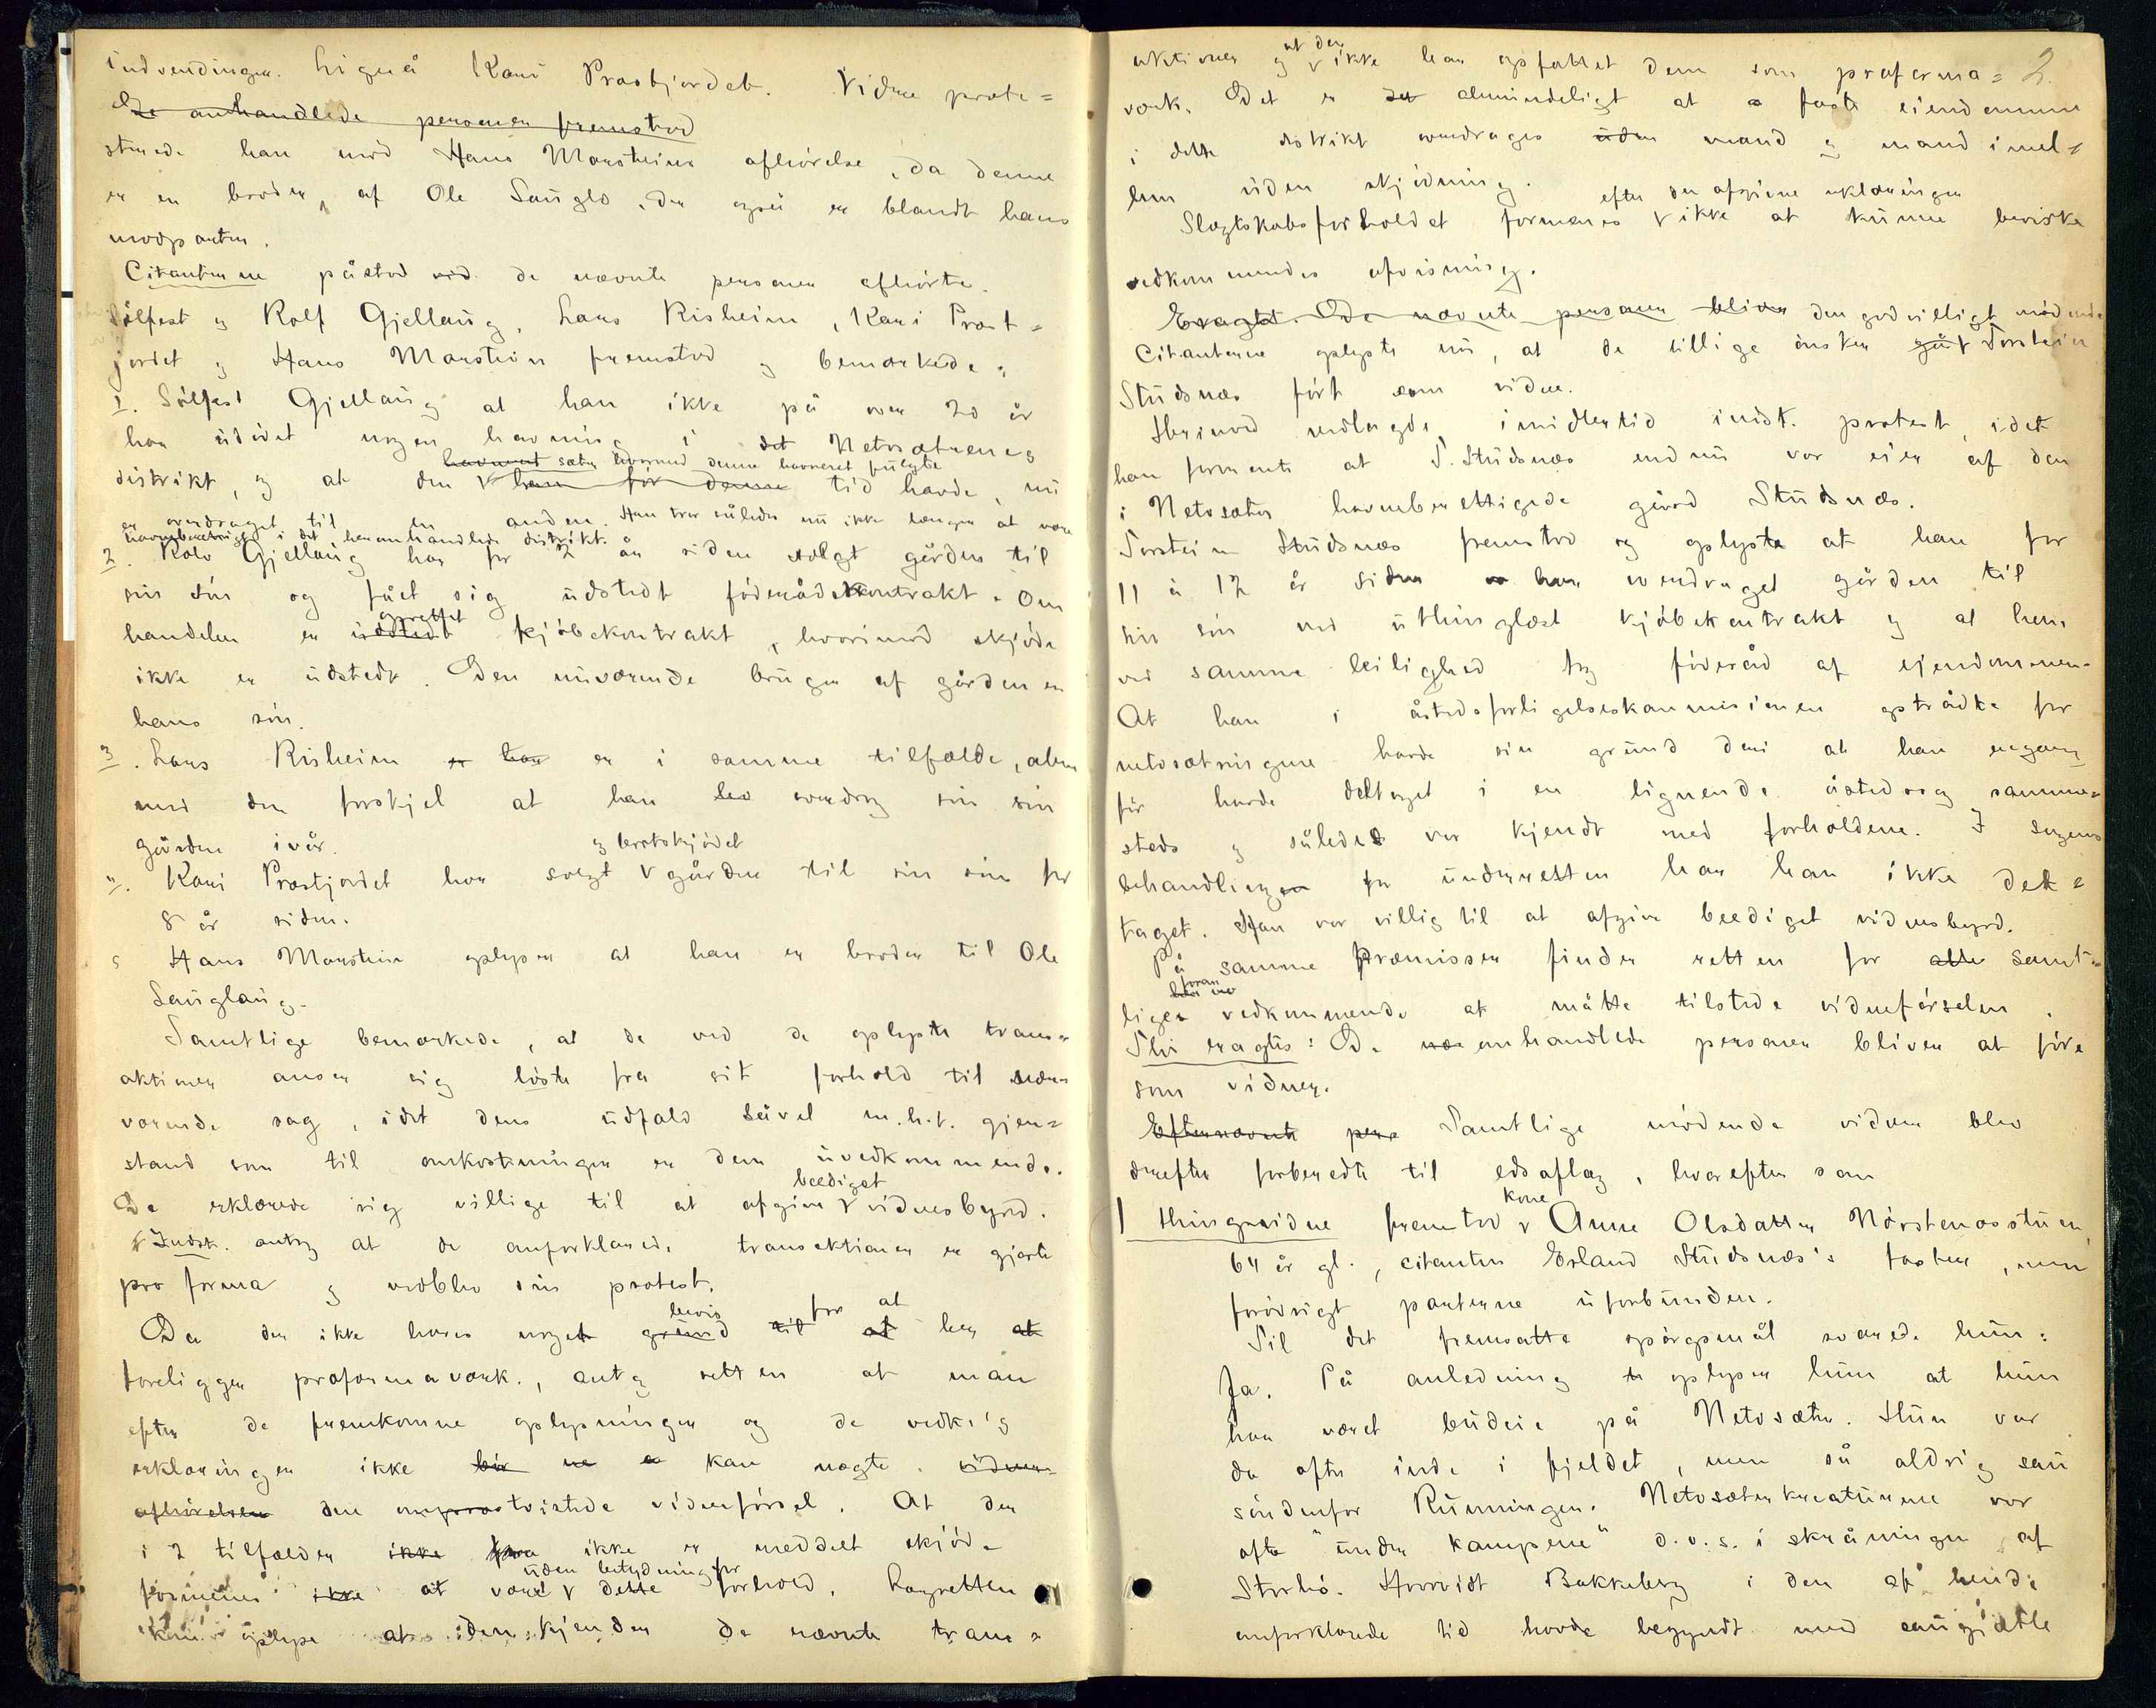 indvendinger. Ligeså Kari Prostjordet. Videre prote=
De anhandlede personer fremstod
sterede han mod Hans Marsteins afhörelse, da denne
er en broder af Ole Sauglo, der også er blandt hans
modparter.
Citanterne påstod de nævnte personer afhörte.
Sölfest og Rolf Gjellaug, Lars Risheim, Kari Prost=
jordet og Hans Marstein fremstod og bemærkede:
1. Sölfest Gjellaug at han ikke på over 20 år
har udövet nogen havning i det Netosæterens
havneret sæter hvormed denne havneret fulgte
distrikt, og at den han för denne tid havde, nu
er overdraget til en anden. Han tror således nu ikke længer at være
havneberettiget i det heromhandlede distrikt.
2. Rolv Gjellaug har for 2 år siden solgt gården til
sin sön og fået sig udstedt föderådskontrakt. Om
oprettet
handelen er udstedt kjöbekontrakt, hvorimod skjöde
ikke er udstedt. Den nuværende bruger af gården er
hans sön.
3. Lars Risheim er han er i samme tilfælde, alene
med den forskjel at han blev overdrog sin sön
gården ivår.
og bortskjödet
4. Kari Prostjordet har solgt gården til sin sön for
8 år siden.
5 Hans Marstein oplyser at han er broder til Ole
Sauglaug.
Samtlige bemærkede, at de ved de oplyste trans=
aktioner anser sig löste fra sit forhold til nær=
værende sag, idet dens udfald såvel m.h.t. gjen=
stand som til omkostninger er dem uvedkommende.
beediget
De erklærede sig villige til at afgive vidnesbyrd.
Indst. antog at de anforklarede transaktioner er gjorte
pro forma og vedblev sin protest.
bevis for at
Da der ikke haves noget grund til at her at
foreligger proformaværk, antog retten at man
efter de fremkomne oplysninger og de vedk.'s
erklæringer ikke bör kan nægte vidne=
afhörelsen den omtvistede vidneförsel. At der
i 2 tilfælder ikke ikke er meddelt skjöde
uden betydning for
formenes ikke at være dette forhold. Lagretten
kan oplyse at den kjender de nævnte trans=
2.
at den
aktioner og ikke har opfattet dem som proforma=
værk. Det er det almindeligt at faste eiendomme
i dette distrikt overdrages uden mand og mand imel=
lem uden skjödning.
efter de afgivne erklæringer
Slægtskabsforholdet formenes ikke at kunne bevirke
vedkommendes afvisning.
Eragtet. De nævnte personer bliver den godvilligt mödende
Citanterne oplyste nu, at de tillige önsker Torstein
Studsnæs fört som vidne.
Herimod nedlagde imidlertid indst. protest, idet
han formente at T. Studsnæs endnu var eier af den
i Netosæter havneberettigede gård Studsnæs.
Torstein Studsnæs fremstod og oplyste at han for
11 à 12 år siden har overdraget gården til
sin sön ved uthinglæst kjöbekontrakt og at han
ved samme leilighed tog föderåd af ejendommen.
At han i åstedsforligelseskommisionen optrådte for
netosætringene havde sin grund deri at han engang
för havde deltaget i en lignende åstedssag samme=
steds og således var kjendt med forholdene. I sagens
behandlingen for underretten har han ikke del=
taget. Han var villig til at afgive beediget vidnesbyrd.
På samme Præmisser finder retten for alle samt=
foran
lige vedkommende at måtte tilstede vidneförselen.
Thi eragtes: De omhandlede personer bliver at före
som vidner.
Efternævnte pers Samtlige mödende vidner blev
derefter forberedte til edsaflæg, hvorefter som
kone
1 thingsvidne fremstod Anne Olsdatter Nörstenæsstuen
64 år gl., citanten Erland Studsnæs's faster, men
forövrigt parterne uforbunden.
Til det fremsatte spörgsmål svarede hun:
Ja. På anledning oplyser hun at hun
har været budeie på Netosæter. Hun var
da ofte inde i fjeldet, men så aldrig sau
söndenfor Runningen. Netosæterkreaturene var
ofte "under kampene" d.v.s. i skråningen af
Storhö. Hvorvidt Bakkeberg i den af hende
omforklarede tid havde begyndt med saugjætle